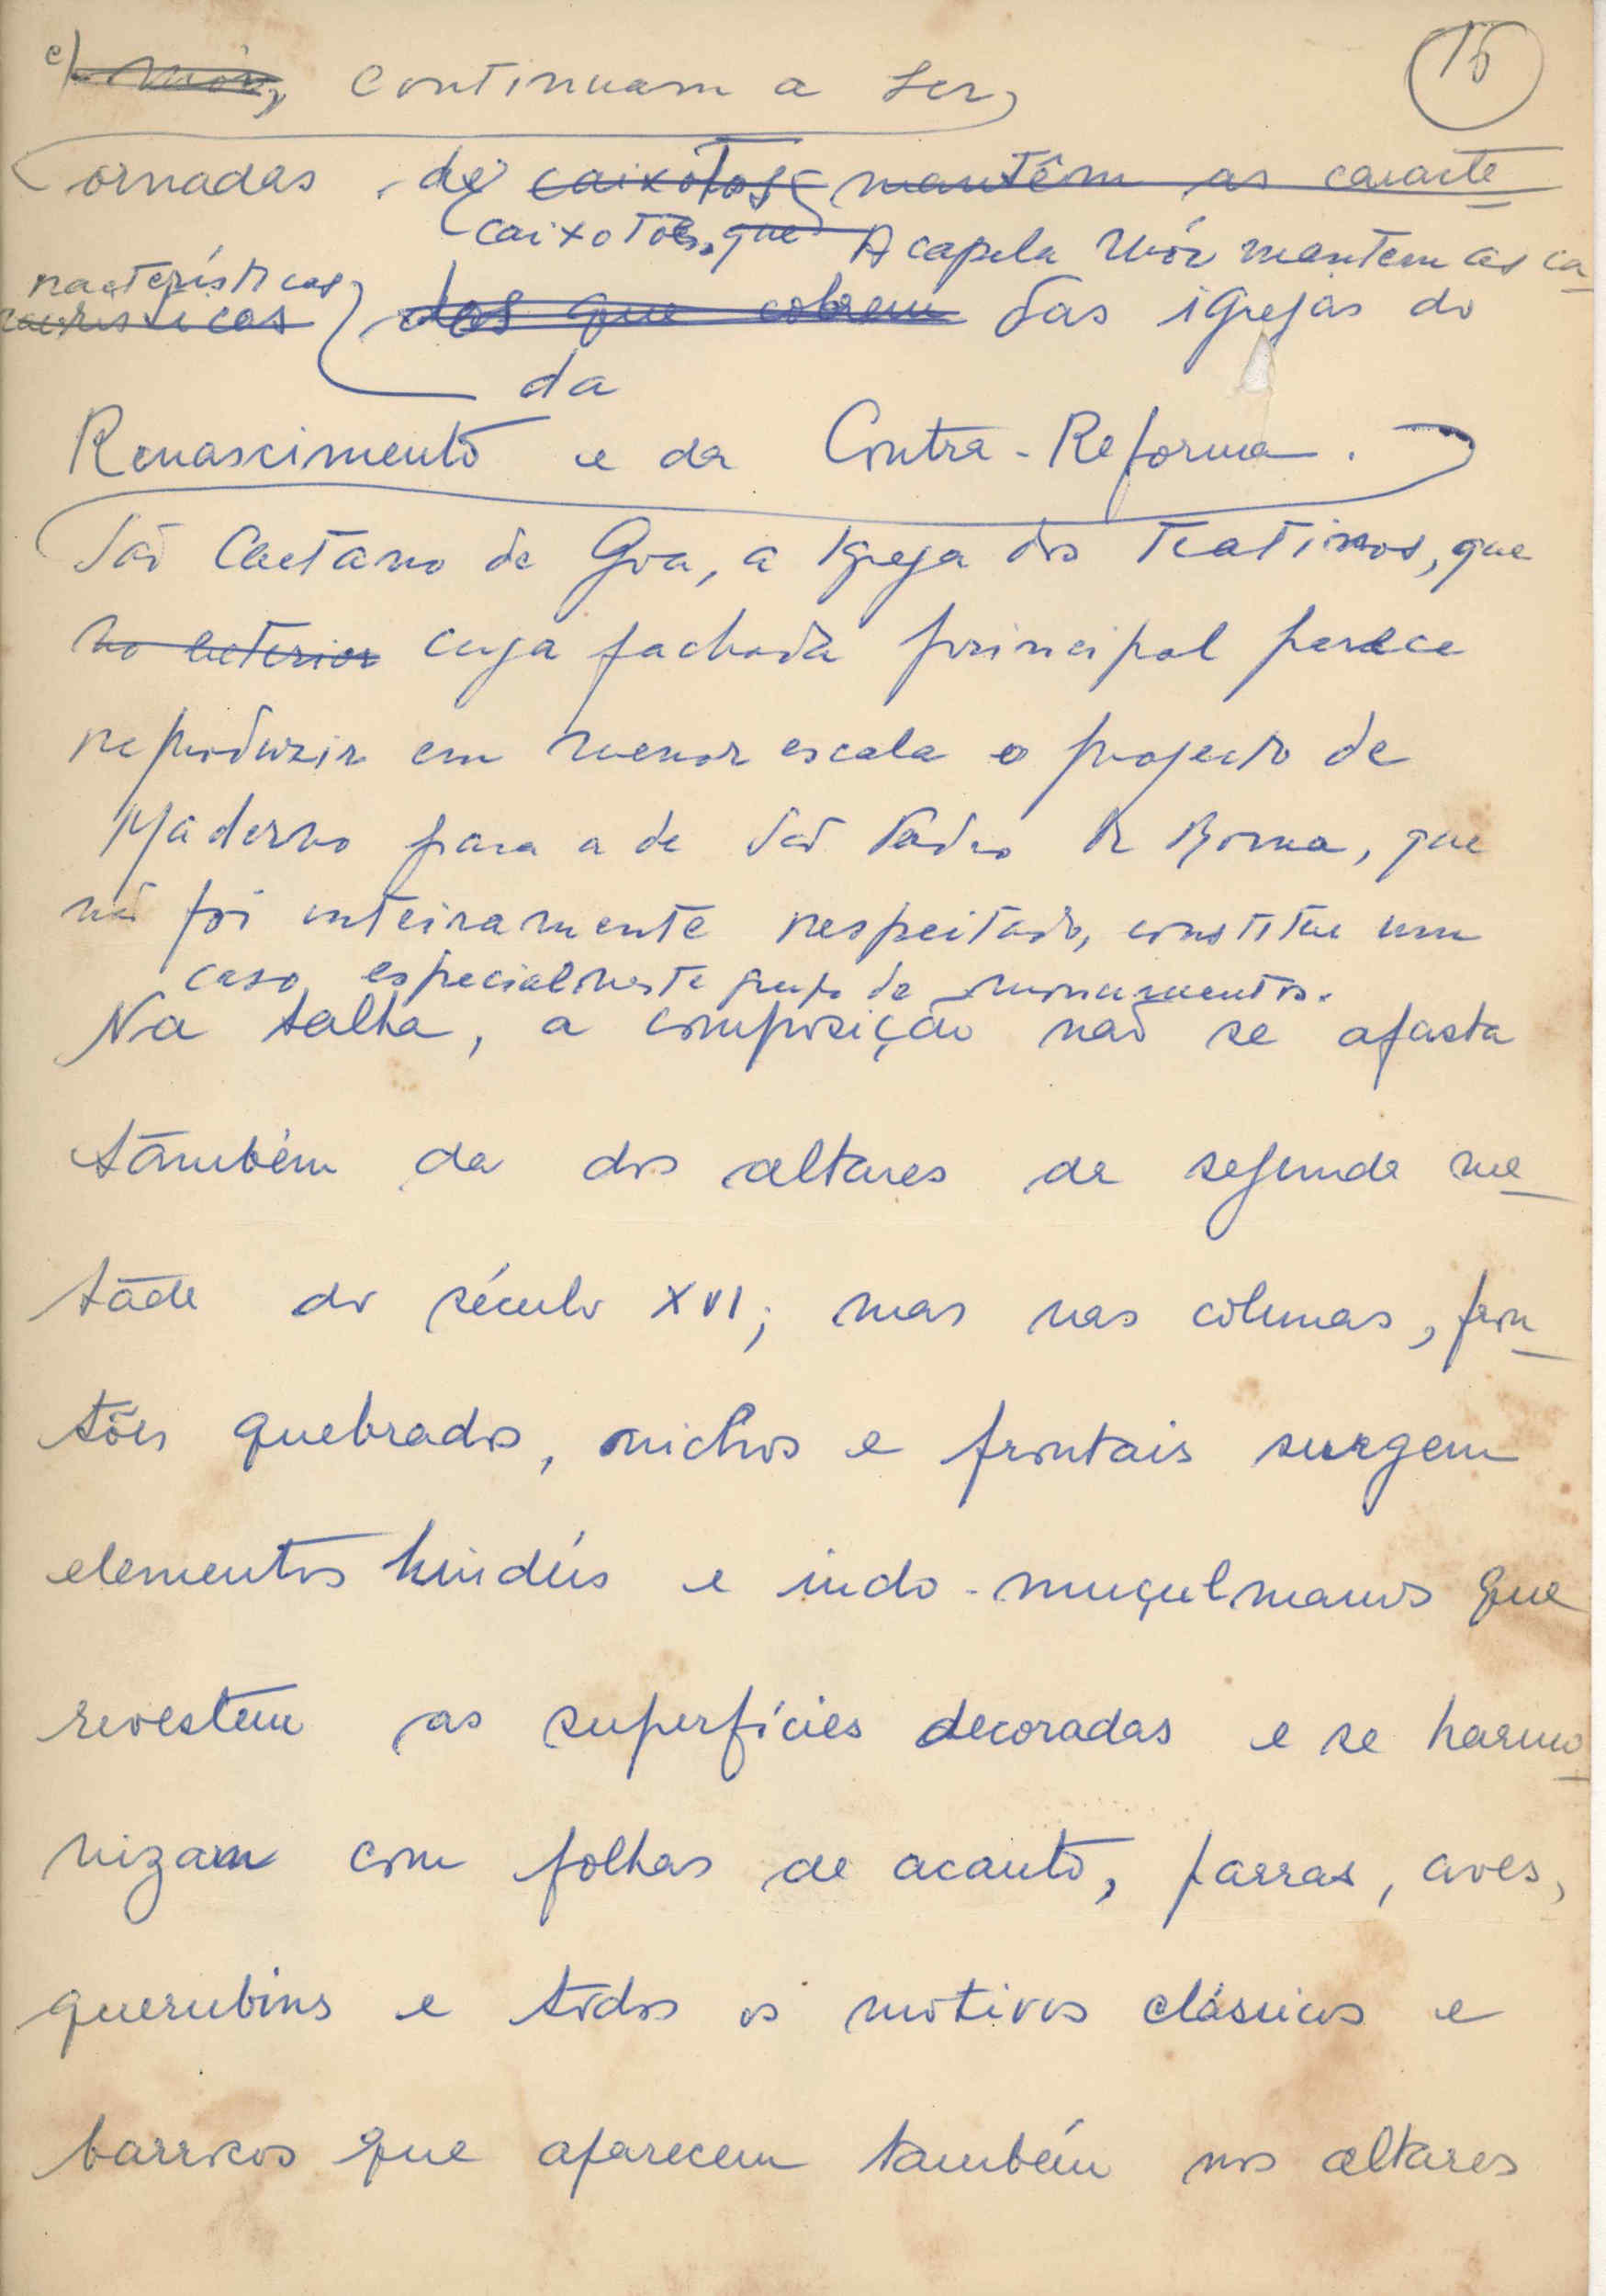 15
e) mór, continuam a ser,
ornadas de caixotões mantêm as caracte-
caixotões, que A capela mór mantem as ca-
racterísticas
racteristicas dos que cobrem das igrejas do
da
Renascimento e da Contra-Reforma.
São Caetano de Goa, a igreja dos Teatinos, que
no exterior cuja fachada principal parece
reproduzir em menor escala o projecto de
Maderno para a de São Pedro de Roma, que
não foi inteiramente respeitado, constitue um
caso especial neste grupo de monumentos.
Na talha, a composição não se afasta
também da dos altares da segunda me-
tade do século XVI; mas nas colunas, fron-
tões quebrados, nichos e frontais surgem
elementos hindús e indo-muçulmanos que
revestem as superfícies decoradas e se harmo-
nizam com folhas de acanto, parras, aves,
querubins e todos os motivos clássicos e
barrocos que aparecem também nos altares